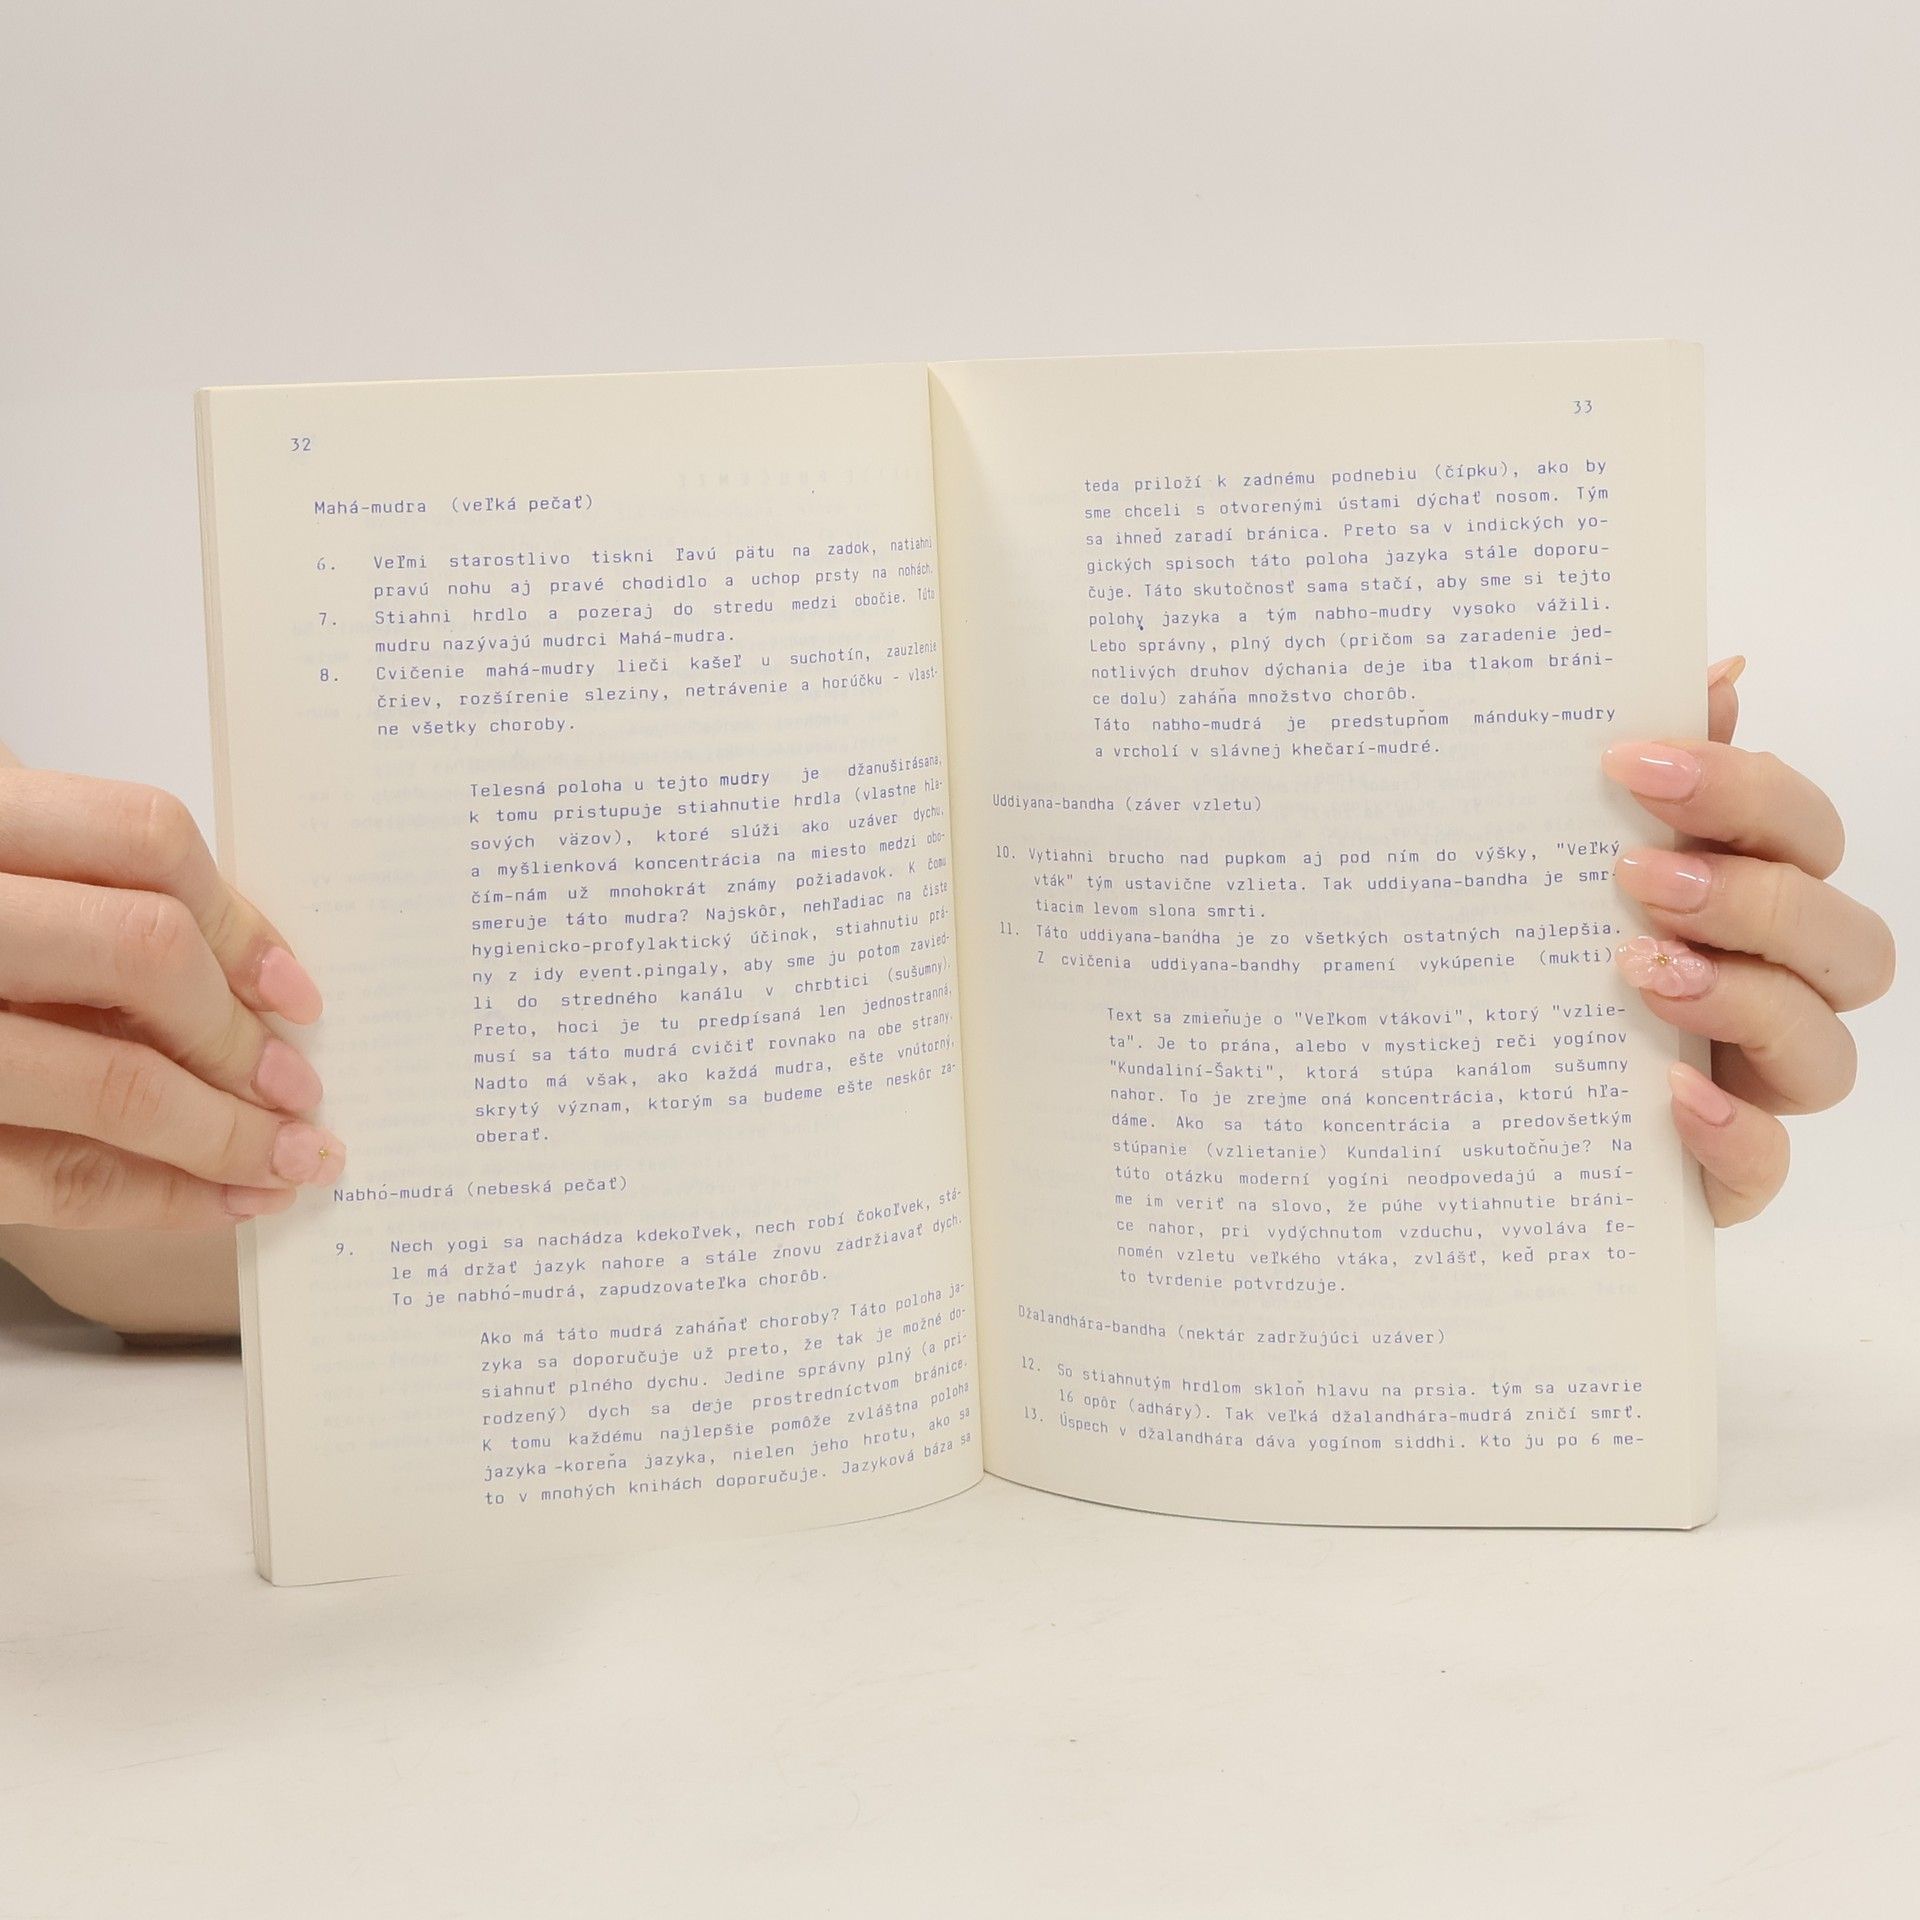 32
Mahá-mudra (veľká pečať)
6. Veľmi starostlivo tiskni ľavú pätu na zadok, natiahni
pravú nohu aj pravé chodidlo a uchop prsty na nohách.
7. Stiahni hrdlo a pozeraj do stredu medzi obočie. Túto
mudru nazývajú mudrci Mahá-mudra.
8. Cvičenie mahá-mudry lieči kašeľ u suchotín, zauzlenie
čriev, rozšírenie sleziny, netrávenie a horúčku - vlast-
ne všetky choroby.
Telesná poloha u tejto mudry je džanuširásana,
k tomu pristupuje stiahnutie hrdla (vlastne hla-
sových väzov), ktoré slúži ako uzáver dychu,
a myšlienková koncentrácia na miesto medzi obo-
čím-nám už mnohokrát známy požiadavok. K čomu
smeruje táto mudra? Najskôr, nehľadiac na čiste
hygienicko-profylaktický účinok, stiahnutiu prá-
ny z idy event.pingaly, aby sme ju potom zavied-
li do stredného kanálu v chrbtici (sušumny).
Preto, hoci je tu predpísaná len jednostranná,
musí sa táto mudrá cvičiť rovnako na obe strany.
Nadto má však, ako každá mudra, ešte vnútorný,
skrytý význam, ktorým sa budeme ešte neskôr za-
oberať.
Nabhó-mudrá (nebeská pečať)
9. Nech yogi sa nachádza kdekoľvek, nech robí čokoľvek, stá-
le má držať jazyk nahore a stále znovu zadržiavať dych.
To je nabhó-mudrá, zapudzovateľka chorôb.
Ako má táto mudrá zaháňať choroby? Táto poloha ja-
zyka sa doporučuje už preto, že tak je možné do-
siahnuť plného dychu. Jedine správny plný (a pri-
rodzený) dych sa deje prostredníctvom bránice.
K tomu každému najlepšie pomôže zvláštna poloha
jazyka -koreňa jazyka, nielen jeho hrotu, ako sa
to v mnohých knihách doporučuje. Jazyková báza sa
33
teda priloží k zadnému podnebiu (čípku), ako by
sme chceli s otvorenými ústami dýchať nosom. Tým
sa ihneď zaradí bránica. Preto sa v indických yo-
gických spisoch táto poloha jazyka stále doporu-
čuje. Táto skutočnosť sama stačí, aby sme si tejto
polohy jazyka a tým nabho-mudry vysoko vážili.
Lebo správny, plný dych (pričom sa zaradenie jed-
notlivých druhov dýchania deje iba tlakom bráni-
ce dolu) zaháňa množstvo chorôb.
Táto nabho-mudrá je predstupňom mánduky-mudry
a vrcholí v slávnej khečarí-mudré.
Uddiyana-bandha (záver vzletu)
10. Vytiahni brucho nad pupkom aj pod ním do výšky, "Veľký
vták" tým ustavične vzlieta. Tak uddiyana-bandha je smr-
tiacim levom slona smrti.
11. Táto uddiyana-bandha je zo všetkých ostatných najlepšia.
Z cvičenia uddiyana-bandhy pramení vykúpenie (mukti)
Text sa zmieňuje o "Veľkom vtákovi", ktorý "vzlie-
ta". Je to prána, alebo v mystickej reči yogínov
"Kundaliní-Šakti", ktorá stúpa kanálom sušumny
nahor. To je zrejme oná koncentrácia, ktorú hľa-
dáme. Ako sa táto koncentrácia a predovšetkým
stúpanie (vzlietanie) Kundaliní uskutočňuje? Na
túto otázku moderní yogíni neodpovedajú a musí-
me im veriť na slovo, že púhe vytiahnutie bráni-
ce nahor, pri vydýchnutom vzduchu, vyvoláva fe-
nomén vzletu veľkého vtáka, zvlášť, keď prax to-
to tvrdenie potvrdzuje.
Džalandhára-bandha (nektár zadržujúci uzáver)
12. So stiahnutým hrdlom skloň hlavu na prsia. tým sa uzavrie
16 opôr (adháry). Tak veľká džalandhára-mudrá zničí smrť.
13. Úspech v džalandhára dáva yogínom siddhi. Kto ju po 6 me-